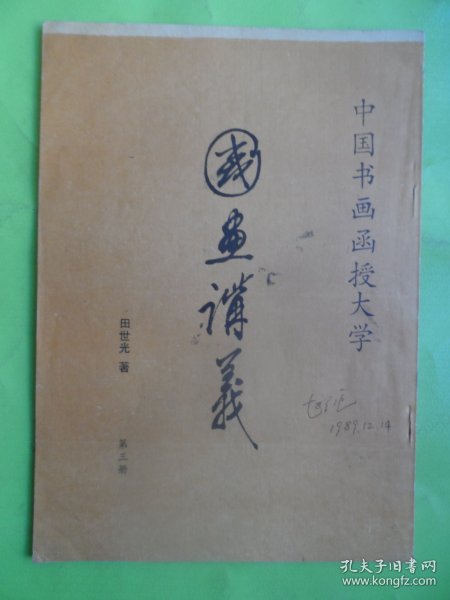 中国书画函授大学
國畫講義
田世光 著
第三册
1989.12.14
孔夫子旧书网
www.kongfz.com